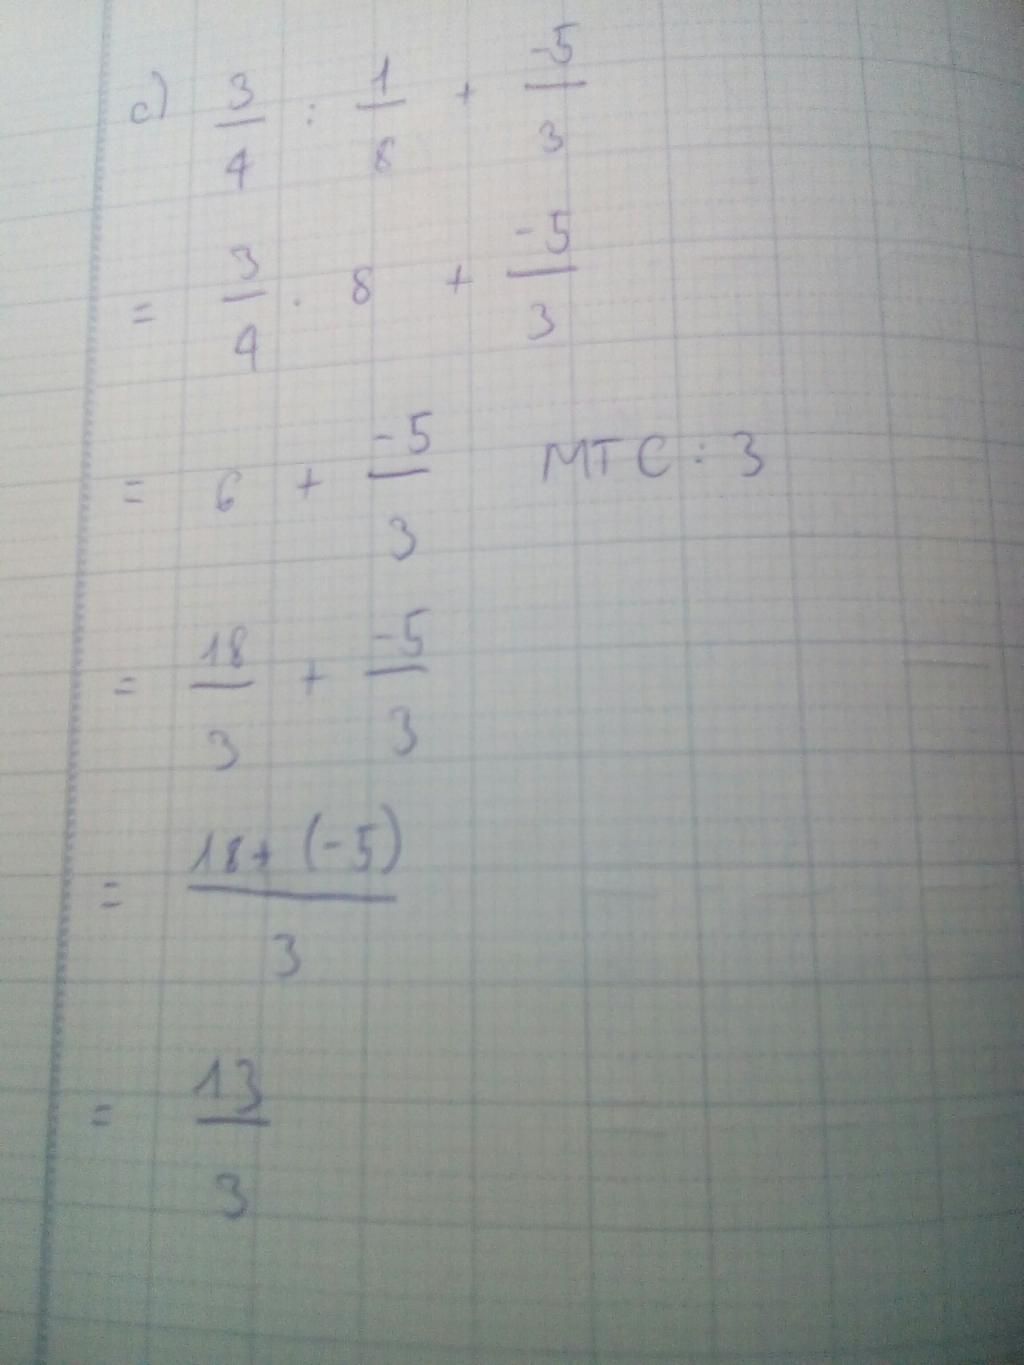 c) 3/4 : 1/8 + -5/3
= 3/4 . 8 + -5/3
= 6 + -5/3 MTC : 3
= 18/3 + -5/3
= 18 + (-5)/3
= 13/3